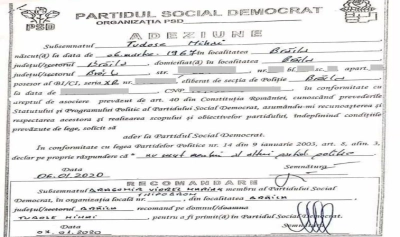 PARTIDUL SOCIAL DEMOCRAT
PSD
ORGANIZAȚIA PSD
ADEZIUNE
Subsemnatul Tudose Mihai
născut(ă) la 06 martie 1967 în localitatea Brăila
județul/sectorul Brăila, domiciliat(ă) în localitatea Brăila
județul/sectorul str. nr. bl. sc. apart.
posesor al BI/CI, seria XR nr. eliberat de secția de Poliție Brăila
la data de CNP în conformitate cu
dreptul de asociere prevăzut de art. 40 din Constituția României, cunoscând prevederile
Statutului și Programului Politic al Partidului Social Democrat, asumându-mi recunoașterea și
respectarea acestora și realizarea scopului și obiectivelor partidului, îndeplinind condițiile
prevăzute de lege, solicit să
ader la Partidul Social Democrat.
În conformitate cu legea Partidelor Politice nr. 14 din 9 ianuarie 2003, art. 8, alin. 3,
declar pe proprie răspundere că partid politic
Data Semnătura
06.01.2020
RECOMANDARE
Subsemnatul DRAGOMIR VIOREL MARIAN membru al Partidului Social
Democrat, în organizația locală nr. din localitatea BRĂILA
județul/sectorul BRĂILA recomand pe domnul/doamna
TUDOSE MIHAI, pentru a fi primit(ă) în Partidul Social Democrat.
Data Semnătura
01.2020